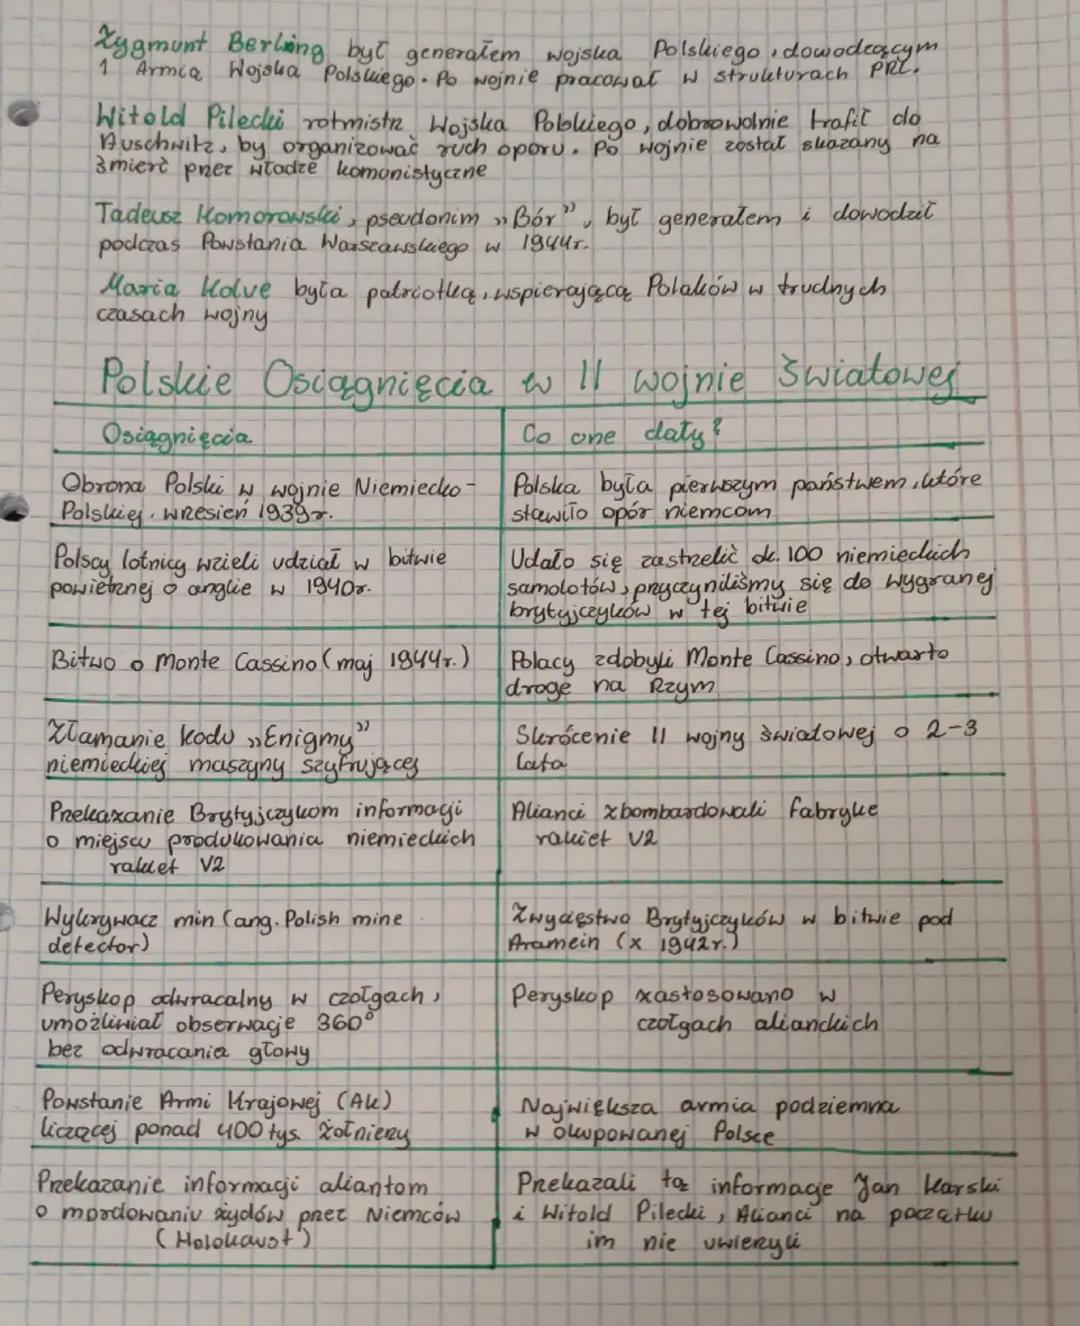 Zygmunt Berling był generałem wojska Polskiego, dowodzącym
1 Armią Wojska Polskiego. Po wojnie pracował w strukturach PRL.
Witold Pilecki rotmistrz Wojska Polskiego, dobrowolnie trafił do
Auschwitz, by organizować ruch oporu. Po wojnie został skazany na
śmierć przez władze komunistyczne
Tadeusz Komorowski, pseudonim „Bór”, był generałem i dowodził
podczas Powstania Warszawskiego w 1944r.
Maria Kolve była patriotką, wspierającą Polaków w trudnych
czasach wojny
Polskie Osiągnięcia w II wojnie Światowej
Osiągnięcia
Co one dały?
Obrona Polski w wojnie Niemiecko-
Polskiej. wrzesień 1939r.
Polska była pierwszym państwem, które
stawiło opór niemcom
Polscy lotnicy wzieli udział w bitwie
powietrznej o anglie w 1940r.
Udało się zastrzelić ok. 100 niemieckich
samolotów, przyczyniliśmy się do wygranej
brytyjczyków w tej bitwie
Bitwo o Monte Cassino (maj 1944r.)
Polacy zdobyli Monte Cassino, otwarto
droge na Rzym
Złamanie kodu „Enigmy”
niemieckiej maszyny szyfrującej
Skrócenie II wojny światowej o 2-3
lata
Przekazanie Brytyjczykom informacji
o miejscu produkowania niemieckich
rakiet V2
Alianci zbombardowali fabryke
rakiet V2
Wykrywacz min (ang. Polish mine
detector)
Zwycięstwo Brytyjczyków w bitwie pod
Aramein (x 1942r.)
Peryskop odwracalny w czołgach,
umożliwiał obserwacje 360°
bez odwracania głowy
Peryskop zastosowano w
czołgach alianckich
Powstanie Armi Krajowej (AK)
liczącej ponad 400 tys. żołnierzy
Największa armia podziemna
w okupowanej Polsce
Przekazanie informacji aliantom
o mordowaniu żydów przez Niemców
(Holokaust)
Przekazali tą informacje Jan Karski
i Witold Pilecki, Alianci na początku
im nie uwierzyli